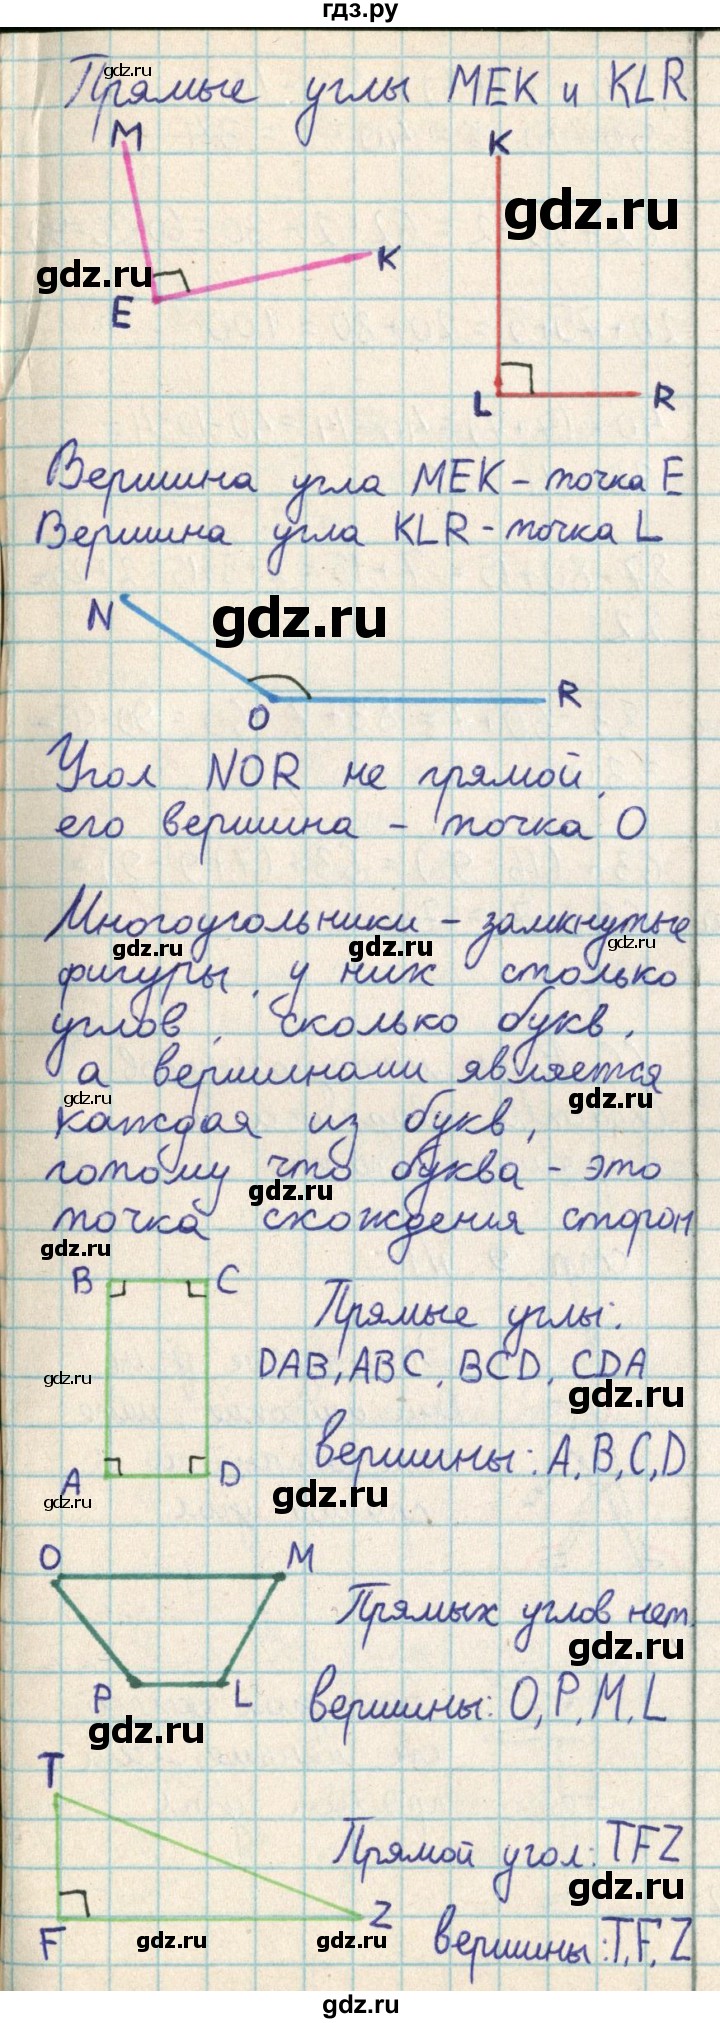 гдз.ру
gdz.ru
Прямые углы MEK и KLR
M
K
gdz.ru
gdz.ru
K
E
L
R
Вершина угла MEK - точка E
Вершина угла KLR - точка L
N
gdz.ru
R
O
Угол NOR не прямой,
его вершина - точка O
Многоугольники - замкнутые
gdz.ru
gdz.ru
gdz.ru
фигуры, у них столько
углов, сколько букв,
а вершинами является
gdz.ru
gdz.ru
каждая из букв,
потому что буква - это
gdz.ru
точка схождения сторон
gdz.ru
B
C
Прямые углы:
gdz.ru
DAB, ABC, BCD, CDA
gdz.ru
вершины: A, B, C, D
A
D
gdz.ru
gdz.ru
O
M
Прямых углов нет.
gdz.ru
P
L
вершины: O, P, M, L
gdz.ru
T
Прямой угол: TFZ
gdz.ru
F
Z
gdz.ru
gdz.ru
вершины: T, F, Z
gdz.ru